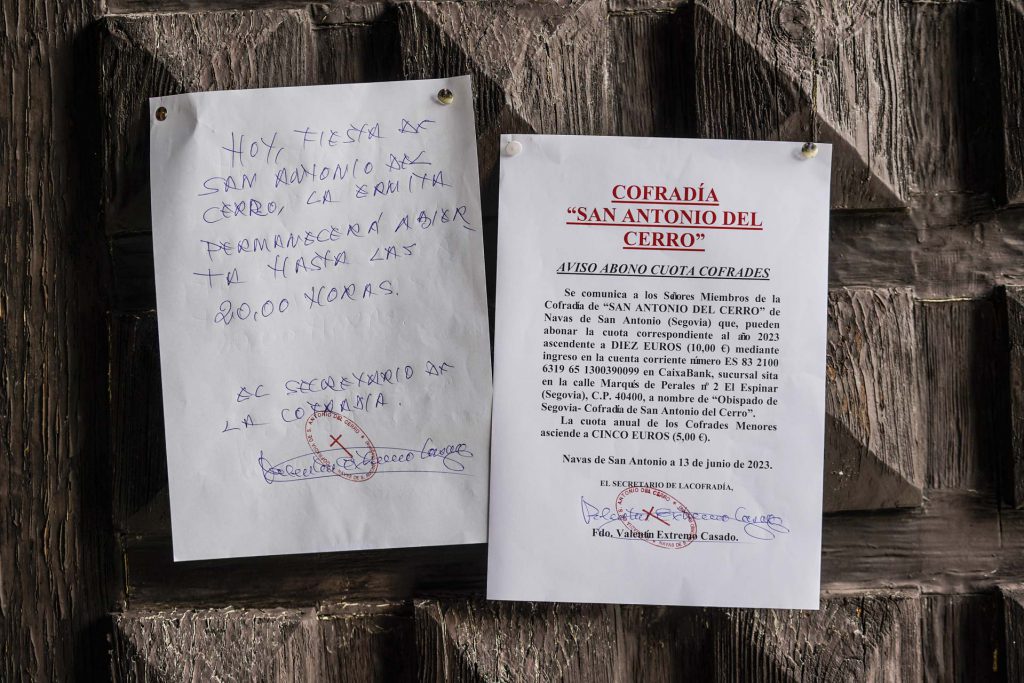 HOY, FIESTA DE
SAN ANTONIO DEL
CERRO, LA ERMITA
PERMANECERÁ ABIER
TA HASTA LAS
20,00 HORAS.
EL SECRETARIO DE
LA COFRADÍA.
Valentín Extremo Casado
COFRADÍA
“SAN ANTONIO DEL
CERRO”
AVISO ABONO CUOTA COFRADES
Se comunica a los Señores Miembros de la
Cofradía de “SAN ANTONIO DEL CERRO” de
Navas de San Antonio (Segovia) que, pueden
abonar la cuota correspondiente al año 2023
ascendente a DIEZ EUROS (10,00 €) mediante
ingreso en la cuenta corriente número ES 83 2100
6319 65 1300390099 en CaixaBank, sucursal sita
en la calle Marqués de Perales nº 2 El Espinar
(Segovia), C.P. 40400, a nombre de “Obispado de
Segovia- Cofradía de San Antonio del Cerro”.
La cuota anual de los Cofrades Menores
asciende a CINCO EUROS (5,00 €).
Navas de San Antonio a 13 de junio de 2023.
EL SECRETARIO DE LACOFRADÍA,
Valentín Extremo Casado
Fdo. Valentín Extremo Casado.